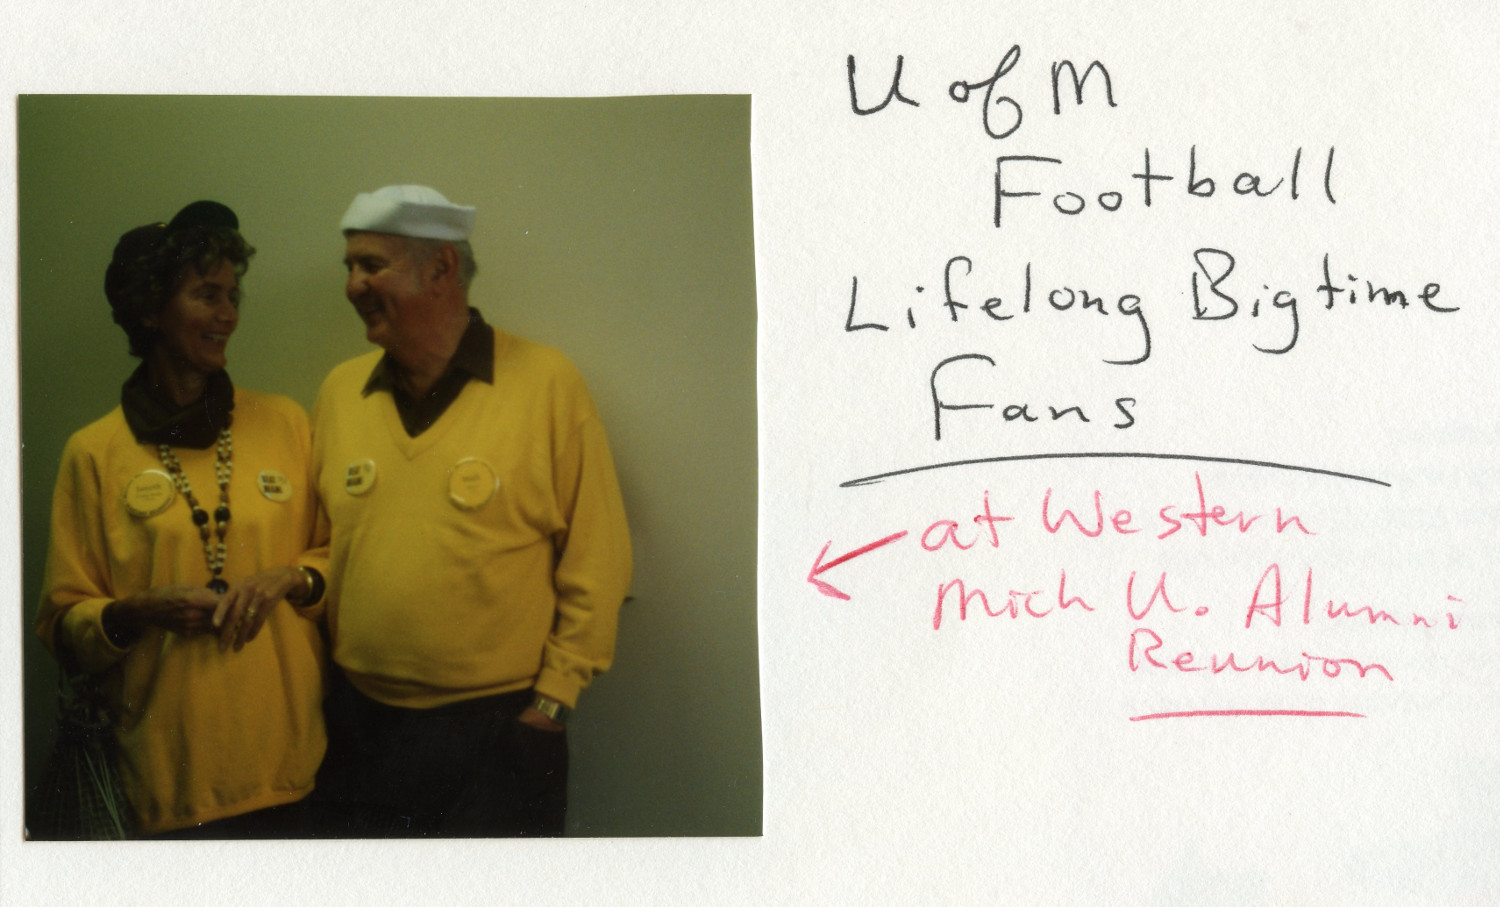 U of M
Football
Lifelong Bigtime
Fans
at Western
Mich U. Alumni
Reunion